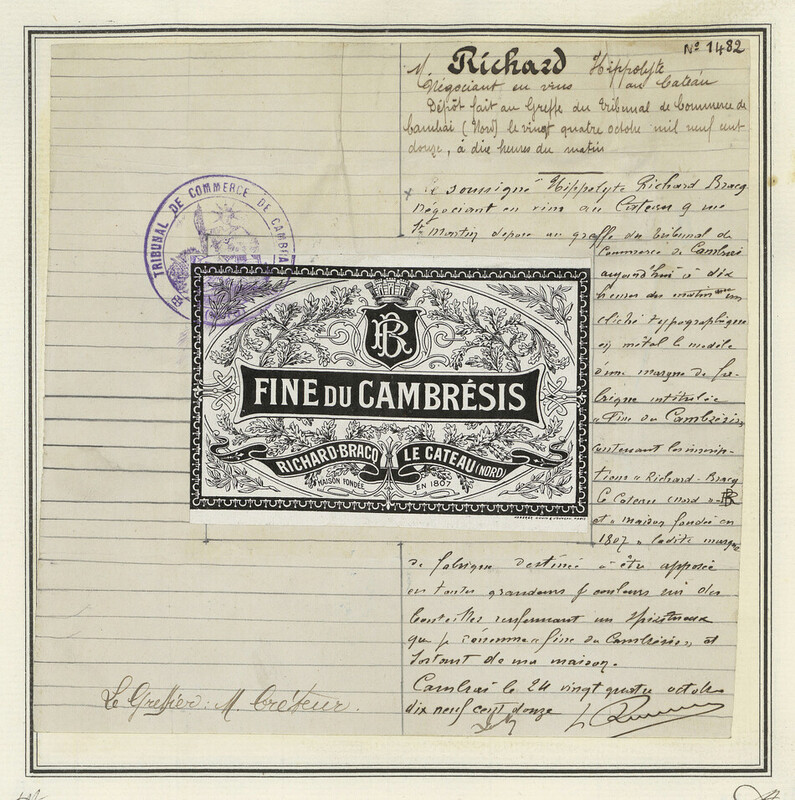 Nº 1482
M. Richard Hippolyte
Négociant en vins au Cateau
Dépôt fait au Greffe du Tribunal de Commerce de
Cambrai (Nord) le vingt quatre octobre mil neuf cent
douze, à dix heures du matin
Le soussigné Hippolyte Richard Bracq
négociant en vins au Cateau 9 rue
St Martin dépose au greffe du tribunal de
Commerce de Cambrai
aujourd'hui à dix
heures du matin un
cliché typographique
en métal le modèle
d'une marque de fa-
brique intitulée
"Fine du Cambrésis"
contenant les inscrip-
tions "Richard-Bracq
le Cateau (nord)" RB
et "maison fondée en
1807" ladite marque
de fabrique destinée à être apposée
en toutes grandeurs & couleurs sur des
bouteilles renfermant un spiritueux
que je dénomme "fine du Cambrésis" et
sortant de ma maison.
Cambrai le 24 vingt quatre octobre
dix neuf cent douze
TRIBUNAL DE COMMERCE DE CAMBRAI
RB
FINE DU CAMBRÉSIS
RICHARD-BRACQ LE CATEAU (NORD)
MAISON FONDÉE EN 1807
Le Greffier: M. Créteur.